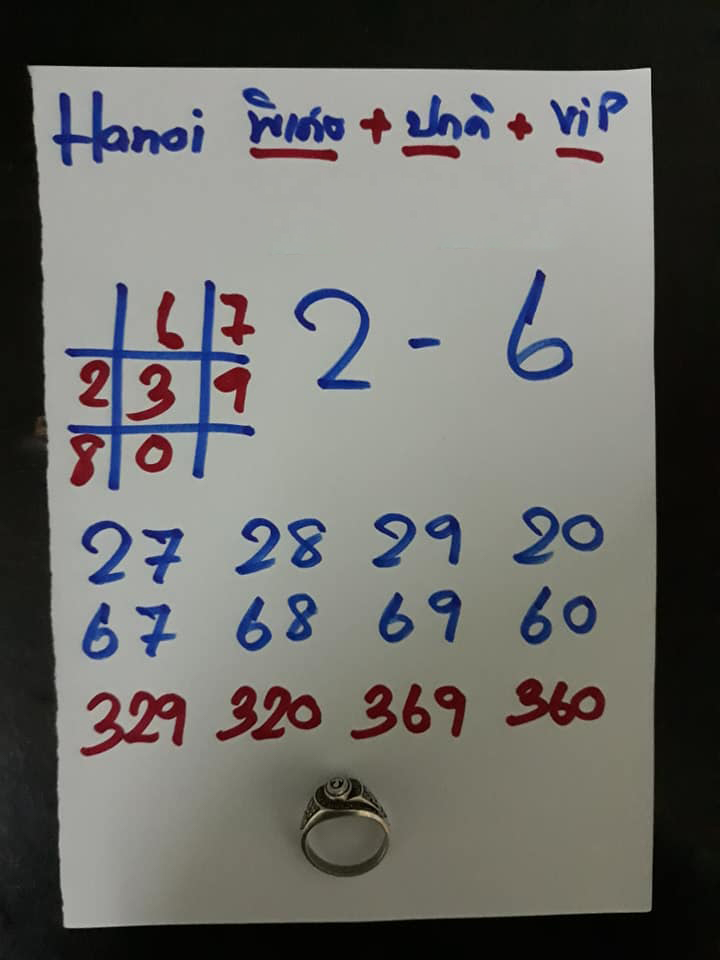 Hanoi พิเศษ + ปกติ + ViP
6 7
2 3 9
8 0
2 - 6
27 28 29 20
67 68 69 60
329 320 369 360